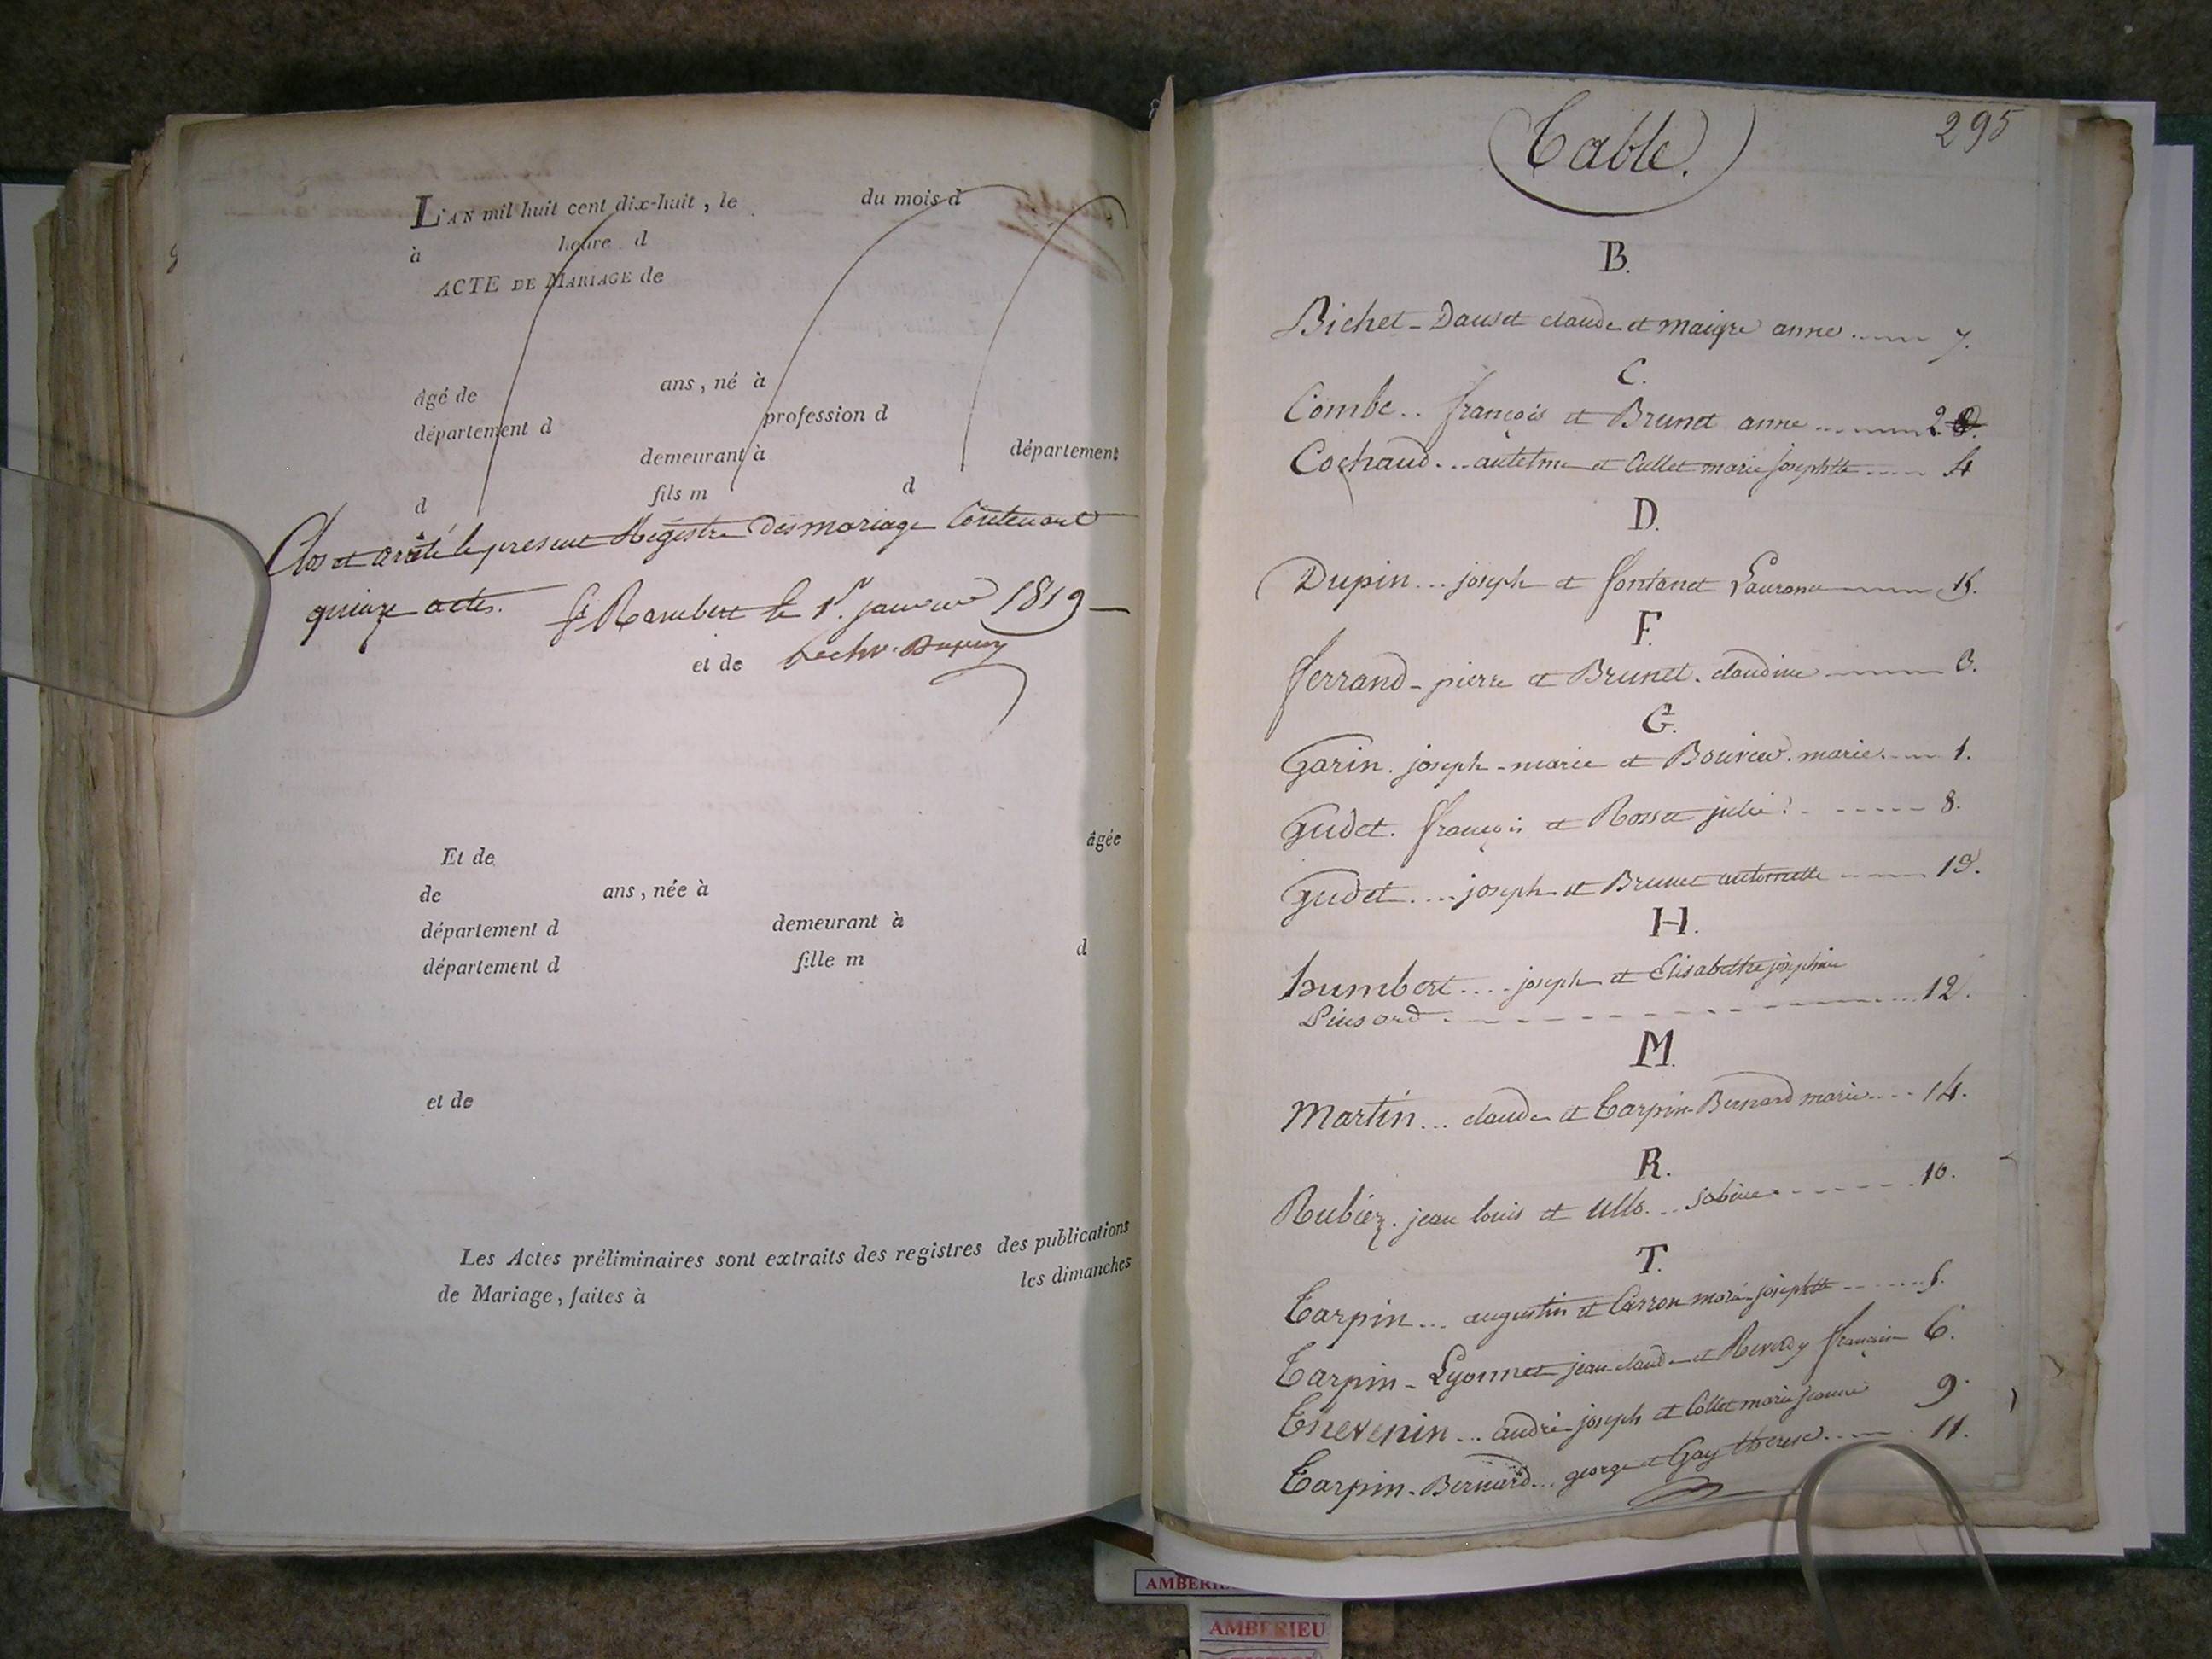 L'AN mil huit cent dix-huit, le du mois d
à heure d
ACTE DE MARIAGE de
âgé de ans, né à
département d profession d
demeurant à département
d fils m d
Clos et arrêté le present Régistre des mariage Contenant
quinze actes. St Rambert le 1er. janvier 1819
et de
Et de âgée
de ans, née à
département d demeurant à
département d fille m d
et de
Les Actes préliminaires sont extraits des registres des publications
de Mariage, faites à les dimanches
295
Table.
B.
Bichet - Dauset claude et maigre anne 7.
C.
Combe.. françois et Brunet anne 2
Cochaud... antelme et Cullet marie josephte 4
D.
Dupin... joseph et fontanet 15.
F.
ferrand - pierre et Brunet. claudine 3.
G.
Garin. joseph-marie et Bouvier. marie. 1.
Gudet. françois et Rosset julie. 8.
Gudet.... joseph et Brunet antoinette 13.
H.
humbert.... joseph et Elisabethe josephine
12.
M.
Martin... claude et Tarpin-Bernard marie 14.
R.
Rubiez. jean louis et sabine 10.
T.
Tarpin... augustin et Carron marie josephte 5.
Tarpin - Lyonnet jean claude et Reverdy françoise 6.
Thevenin... andré joseph et Collet marie jeanne 9.
Tarpin-Bernard... george et Gay therese 11.
AMBERIEU
AMBERIEU